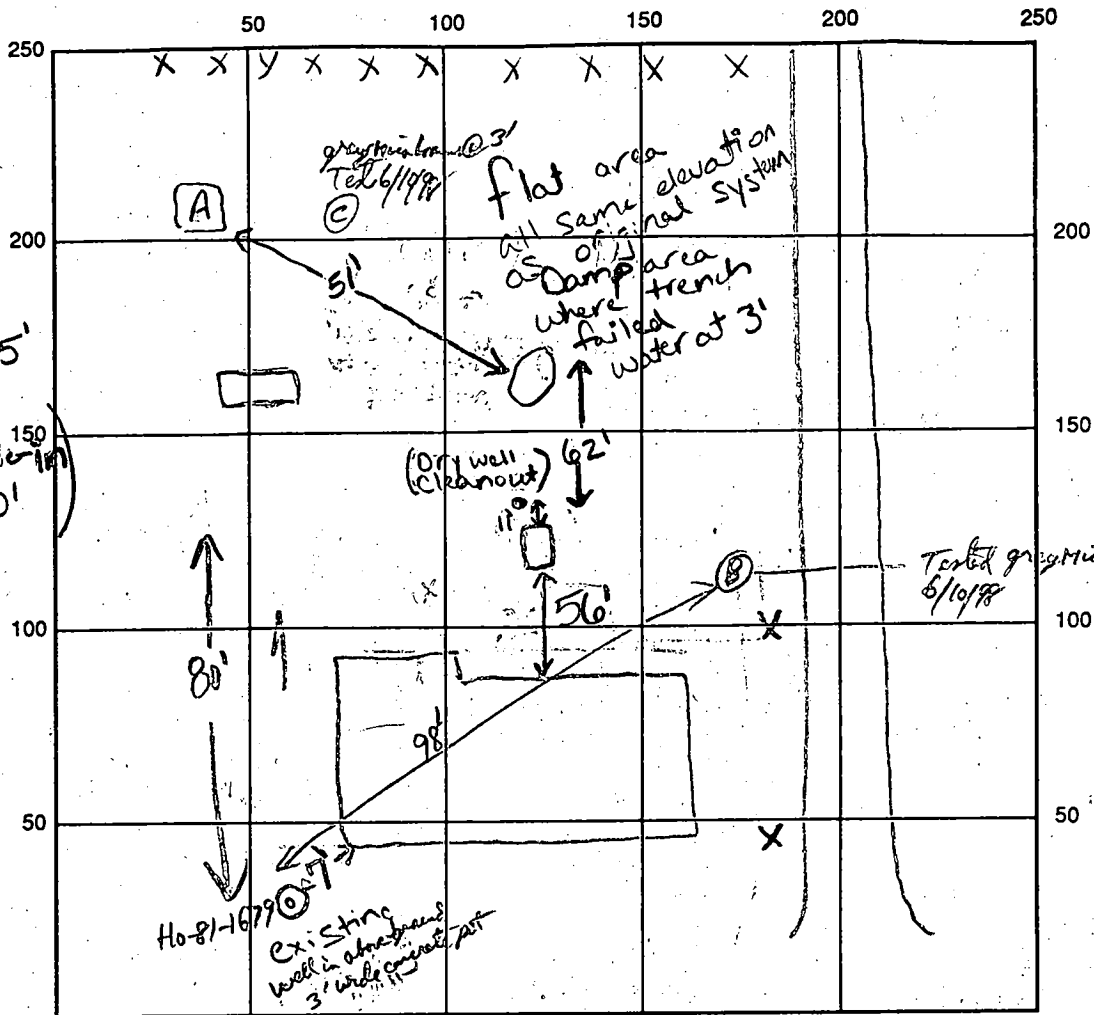 50 100 150 200 250
250
X X y X X X X X X X
@ 3'
6/10/98
A
C
flat area
all same elevation
as original system
Damp area
where trench
failed
water at 3'
200 200
51'
5'
150 150
0'
(Dry well
Cleanout)
62'
11'
B
Tested gray
6/10/98
X
56'
100 100
X
80'
98'
50 50
X
7'
Ho-81-1679
existing
well in above ground
3' wide concrete pit